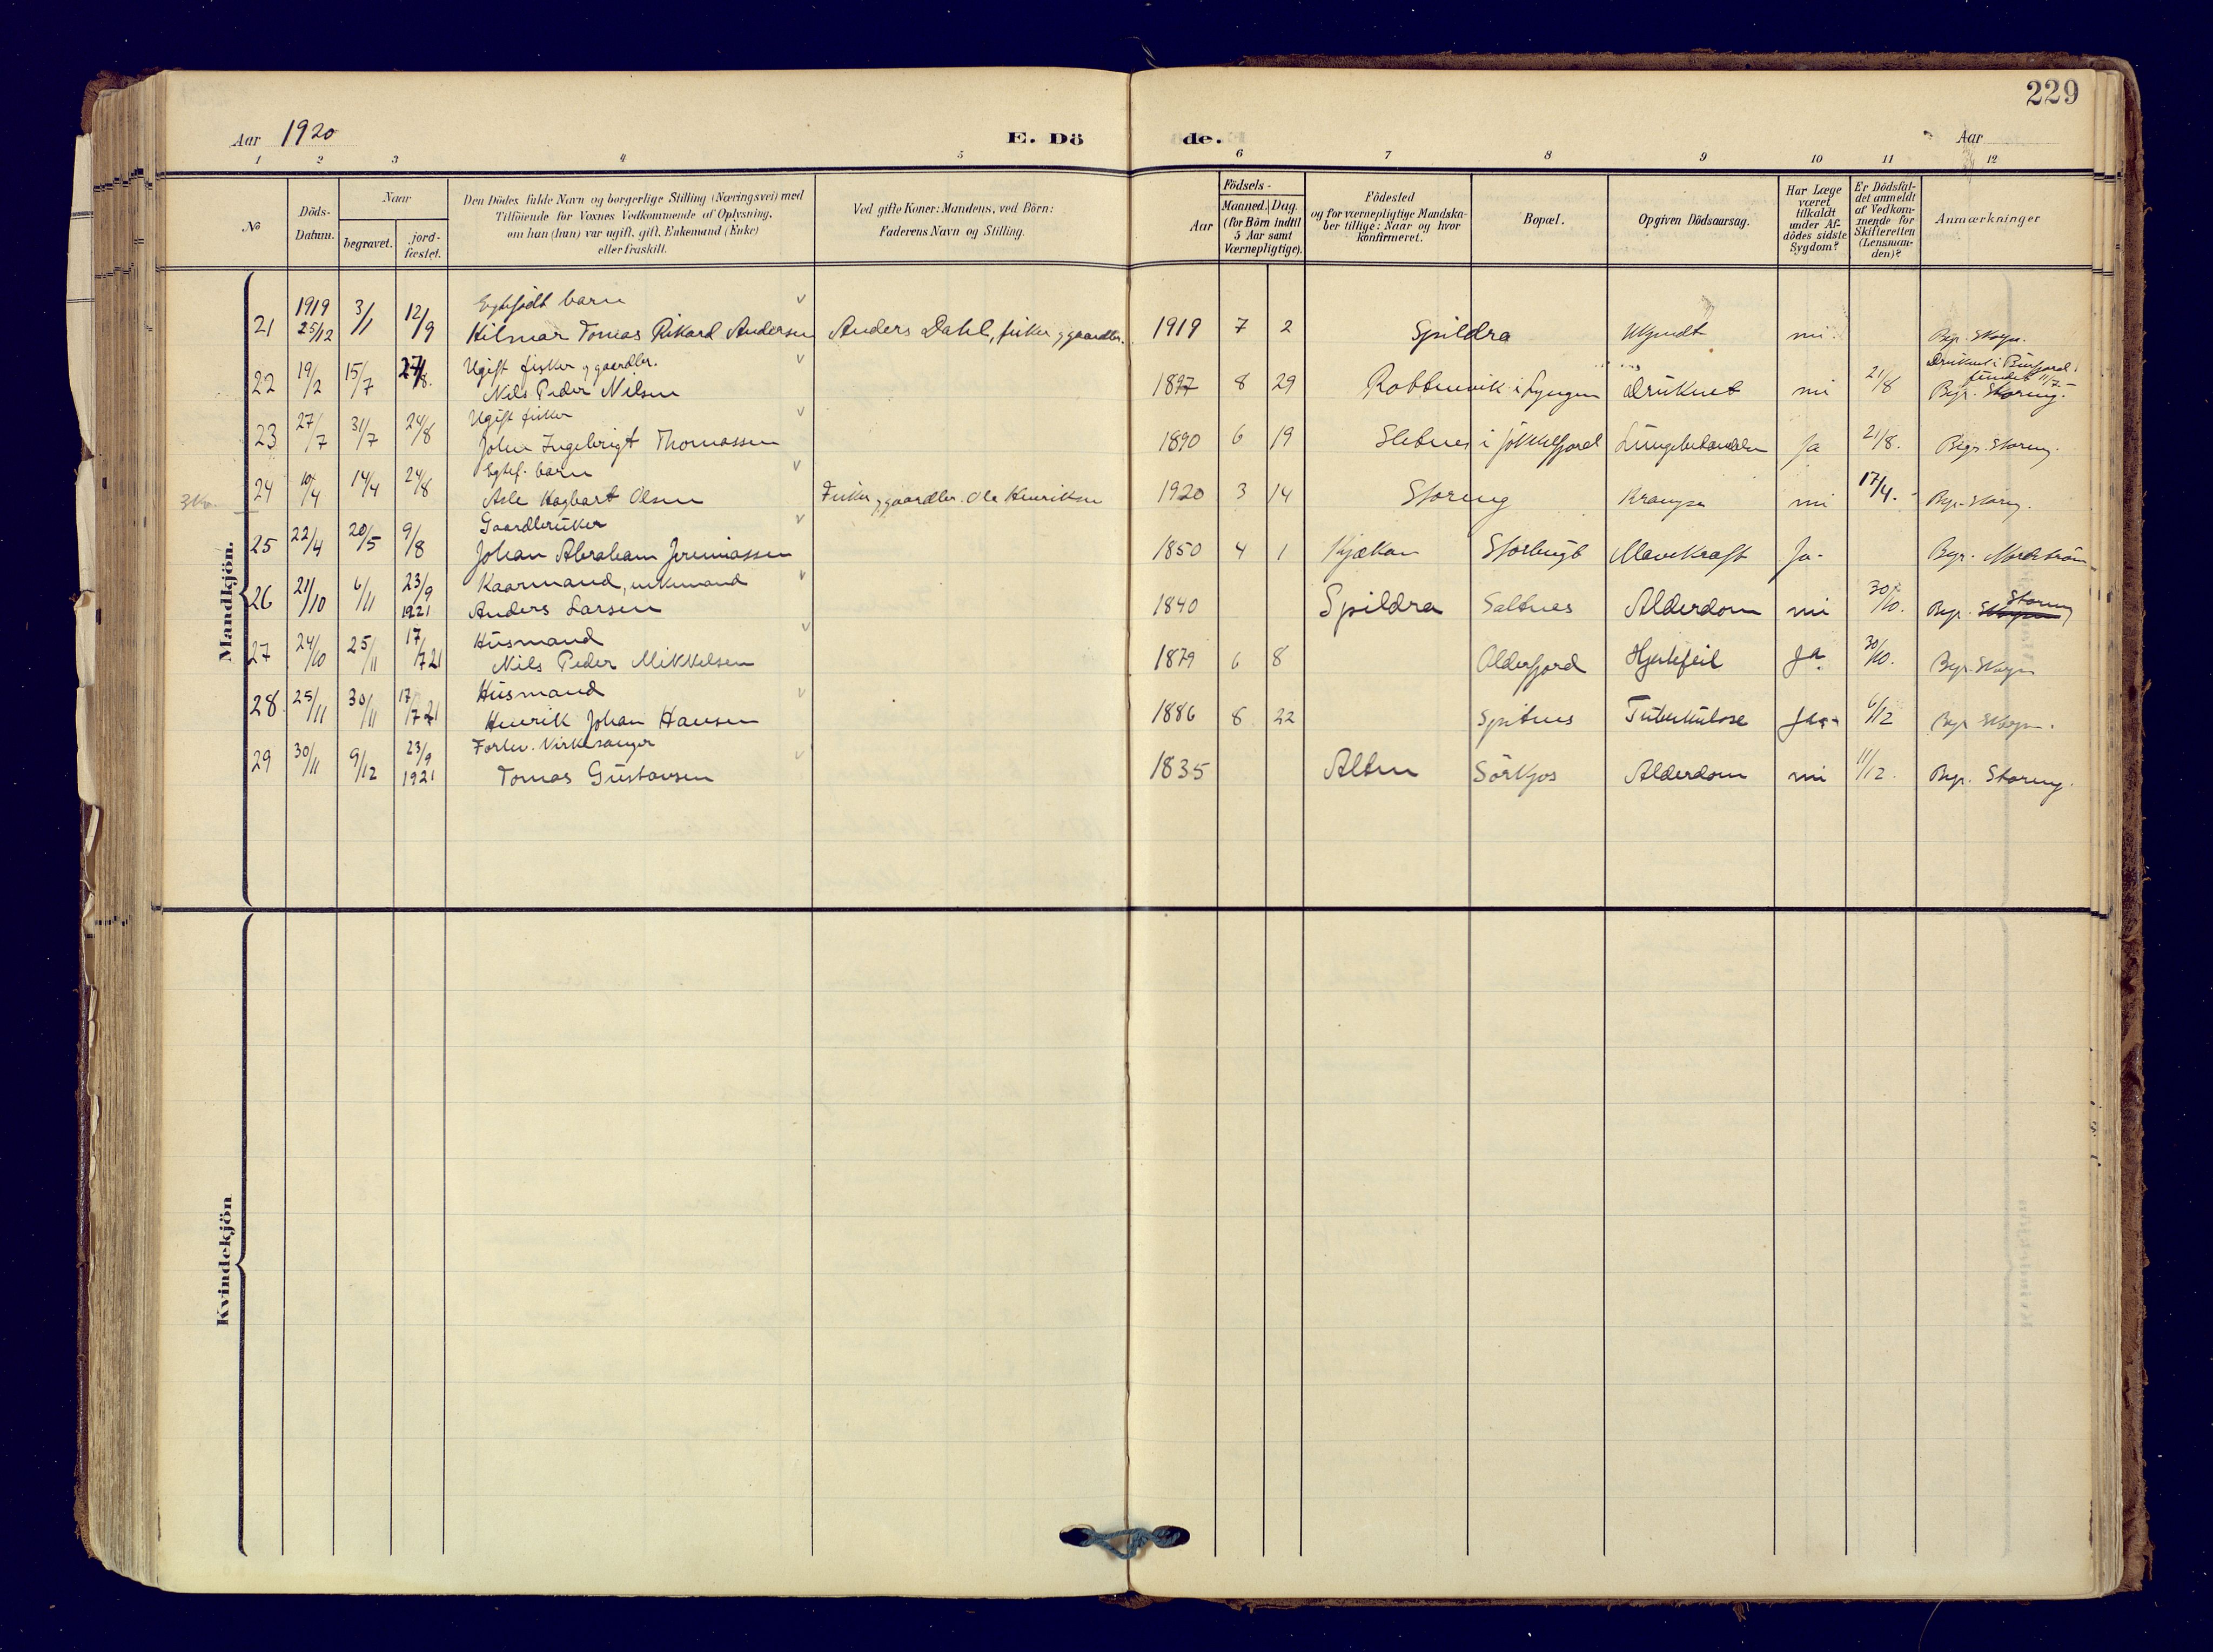 229
Aar 1920
E. Dö de.
Aar
1 2 3 4 5 6 7 8 9 10 11 12
No
Döds-Datum.
Naar
begravet.
jord-fæstet.
Den Dödes fulde Navn og borgerlige Stilling (Næringsvei) med
Tilföiende for Voxnes Vedkommende af Oplysning,
om han (hun) var ugift, gift, Enkemand (Enke)
eller fraskilt.
Ved gifte Koner: Mandens, ved Börn:
Faderens Navn og Stilling.
Aar
Födsels-
Maaned. Dag.
(for Börn indtil
5 Aar samt
Værnepligtige).
Födested
og for værnepligtige Mandska-
ber tillige: Naar og hvor
konfirmeret.
Bopæl.
Opgiven Dödsaarsag.
Har Læge
været
tilkaldt
under Af-
dödes sidste
Sygdom?
Er Dödsfal-
det anmeldt
af Vedkom-
mende for
Skifteretten
(Lensman-
den)?
Anmærkninger
Mandkjön.
1919 Egtefödt barn
21 25/12 3/1 12/9 Hilmar Tomas Rikard Andersen Anders Dahl, fisker og gaardbr. 1919 7 2 Spildra Ukjendt nei Begr. Skogn.
Ugift fisker og gaardbr. Druknet i Burfjord.
fundet 11/7
22 19/2 15/7 24/8. Nils Peder Nilsen 1897 8 29 Rottenvik i Lyngen druknet nei 21/8 Begr. Storeng.
Ugift fisker
23 27/7 31/7 24/8 Johan Ingebrigt Thomassen 1890 6 19 Sletnes i Jökkelfjord Ja 21/8. Begr. Storeng.
Egtef. barn
3 Kv. 24 10/4 14/4 24/8 Asle Hagbart Olsen Fisker og gaardbr. Ole Henriksen 1920 3 14 Storeng Krampe nei 17/4. Begr. Storeng.
Gaardbruker
25 22/4 20/5 9/8 Johan Abraham Jeremiassen 1850 4 1 Kjækan Storbugt Mavekræft Ja. Begr. Nordström
Kaarmand, enkemand
26 21/10 6/11 23/9 1921 Anders Larsen 1840 Spildra Saltnes Alderdom nei 30/10. Begr. Skogn Storeng
Husmand
27 24/10 25/11 17/7 21 Nils Peder Mikkelsen 1879 6 8 Olderfjord Hjertefeil Ja. 30/10. Begr. Skogn
Husmand
28 25/11 30/11 17/7 21 Henrik Johan Hansen 1886 8 22 Spitnes Tuberkulose Ja 6/12 Begr. Skogn.
Forhv. Kirkesanger
29 30/11 9/12 23/9 1921 Tomas Gustavsen 1835 Alten Sörkjos Alderdom nei 11/12. Begr. Storeng.
Kvindekjön